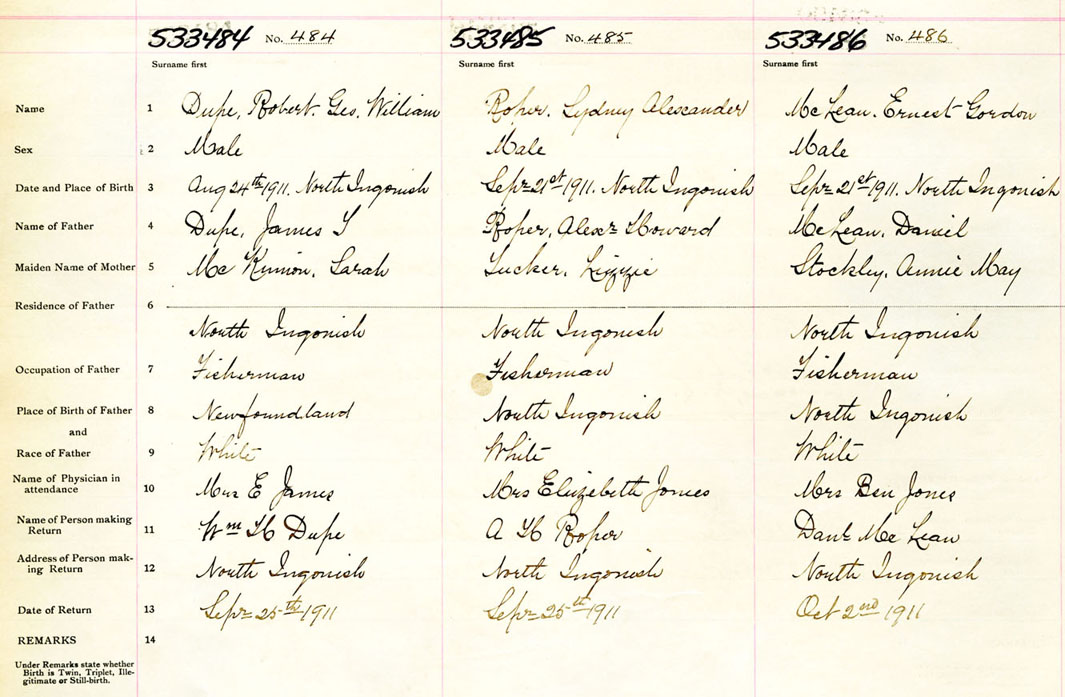 533484 No. 484 533485 No. 485 533486 No. 486
Surname first Surname first Surname first
Name 1 Dupe, Robert. Geo. William Roper. Sydney Alexcander McLean. Ernest Gordon
Sex 2 Male Male Male
Date and Place of Birth 3 Aug 24th 1911. North Ingonish Sept 21st 1911. North Ingonish Sept 21st 1911. North Ingonish
Name of Father 4 Dupe, James S Roper, Alexr Howard McLean, Daniel
Maiden Name of Mother 5 Mc Kinnon, Sarah Tucker, Lizzie Stockley, Annie May
Residence of Father 6
North Ingonish North Ingonish North Ingonish
Occupation of Father 7 Fisherman Fisherman Fisherman
Place of Birth of Father 8 Newfoundland North Ingonish North Ingonish
and
Race of Father 9 White White White
Name of Physician in
attendance 10 Mrs E James Mrs Elizebeth Jomes Mrs Ben Jones
Name of Person making
Return 11 Wm H Dupe A H Roper Danl Mc Lean
Address of Person mak-
ing Return 12 North Ingonish North Ingonish North Ingonish
Date of Return 13 Sept 25th 1911 Sept 25th 1911 Oct 2nd 1911
REMARKS 14
Under Remarks state whether
Birth is Twin, Triplet, Ille-
gitimate or Still-birth.